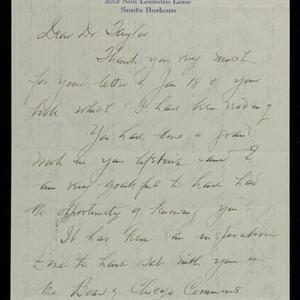 232 San Leandro Lane
Santa Barbara
Dear Dr Taylor
Thank you very much
for your letter of Jan 18 & your
book which I have been reading
You have done a grand
work in your lifetime and I
am very grateful to have had
the opportunity of knowing you.
It has been an inspiration
to me to have sat with you on
the Board of Chicago Commons